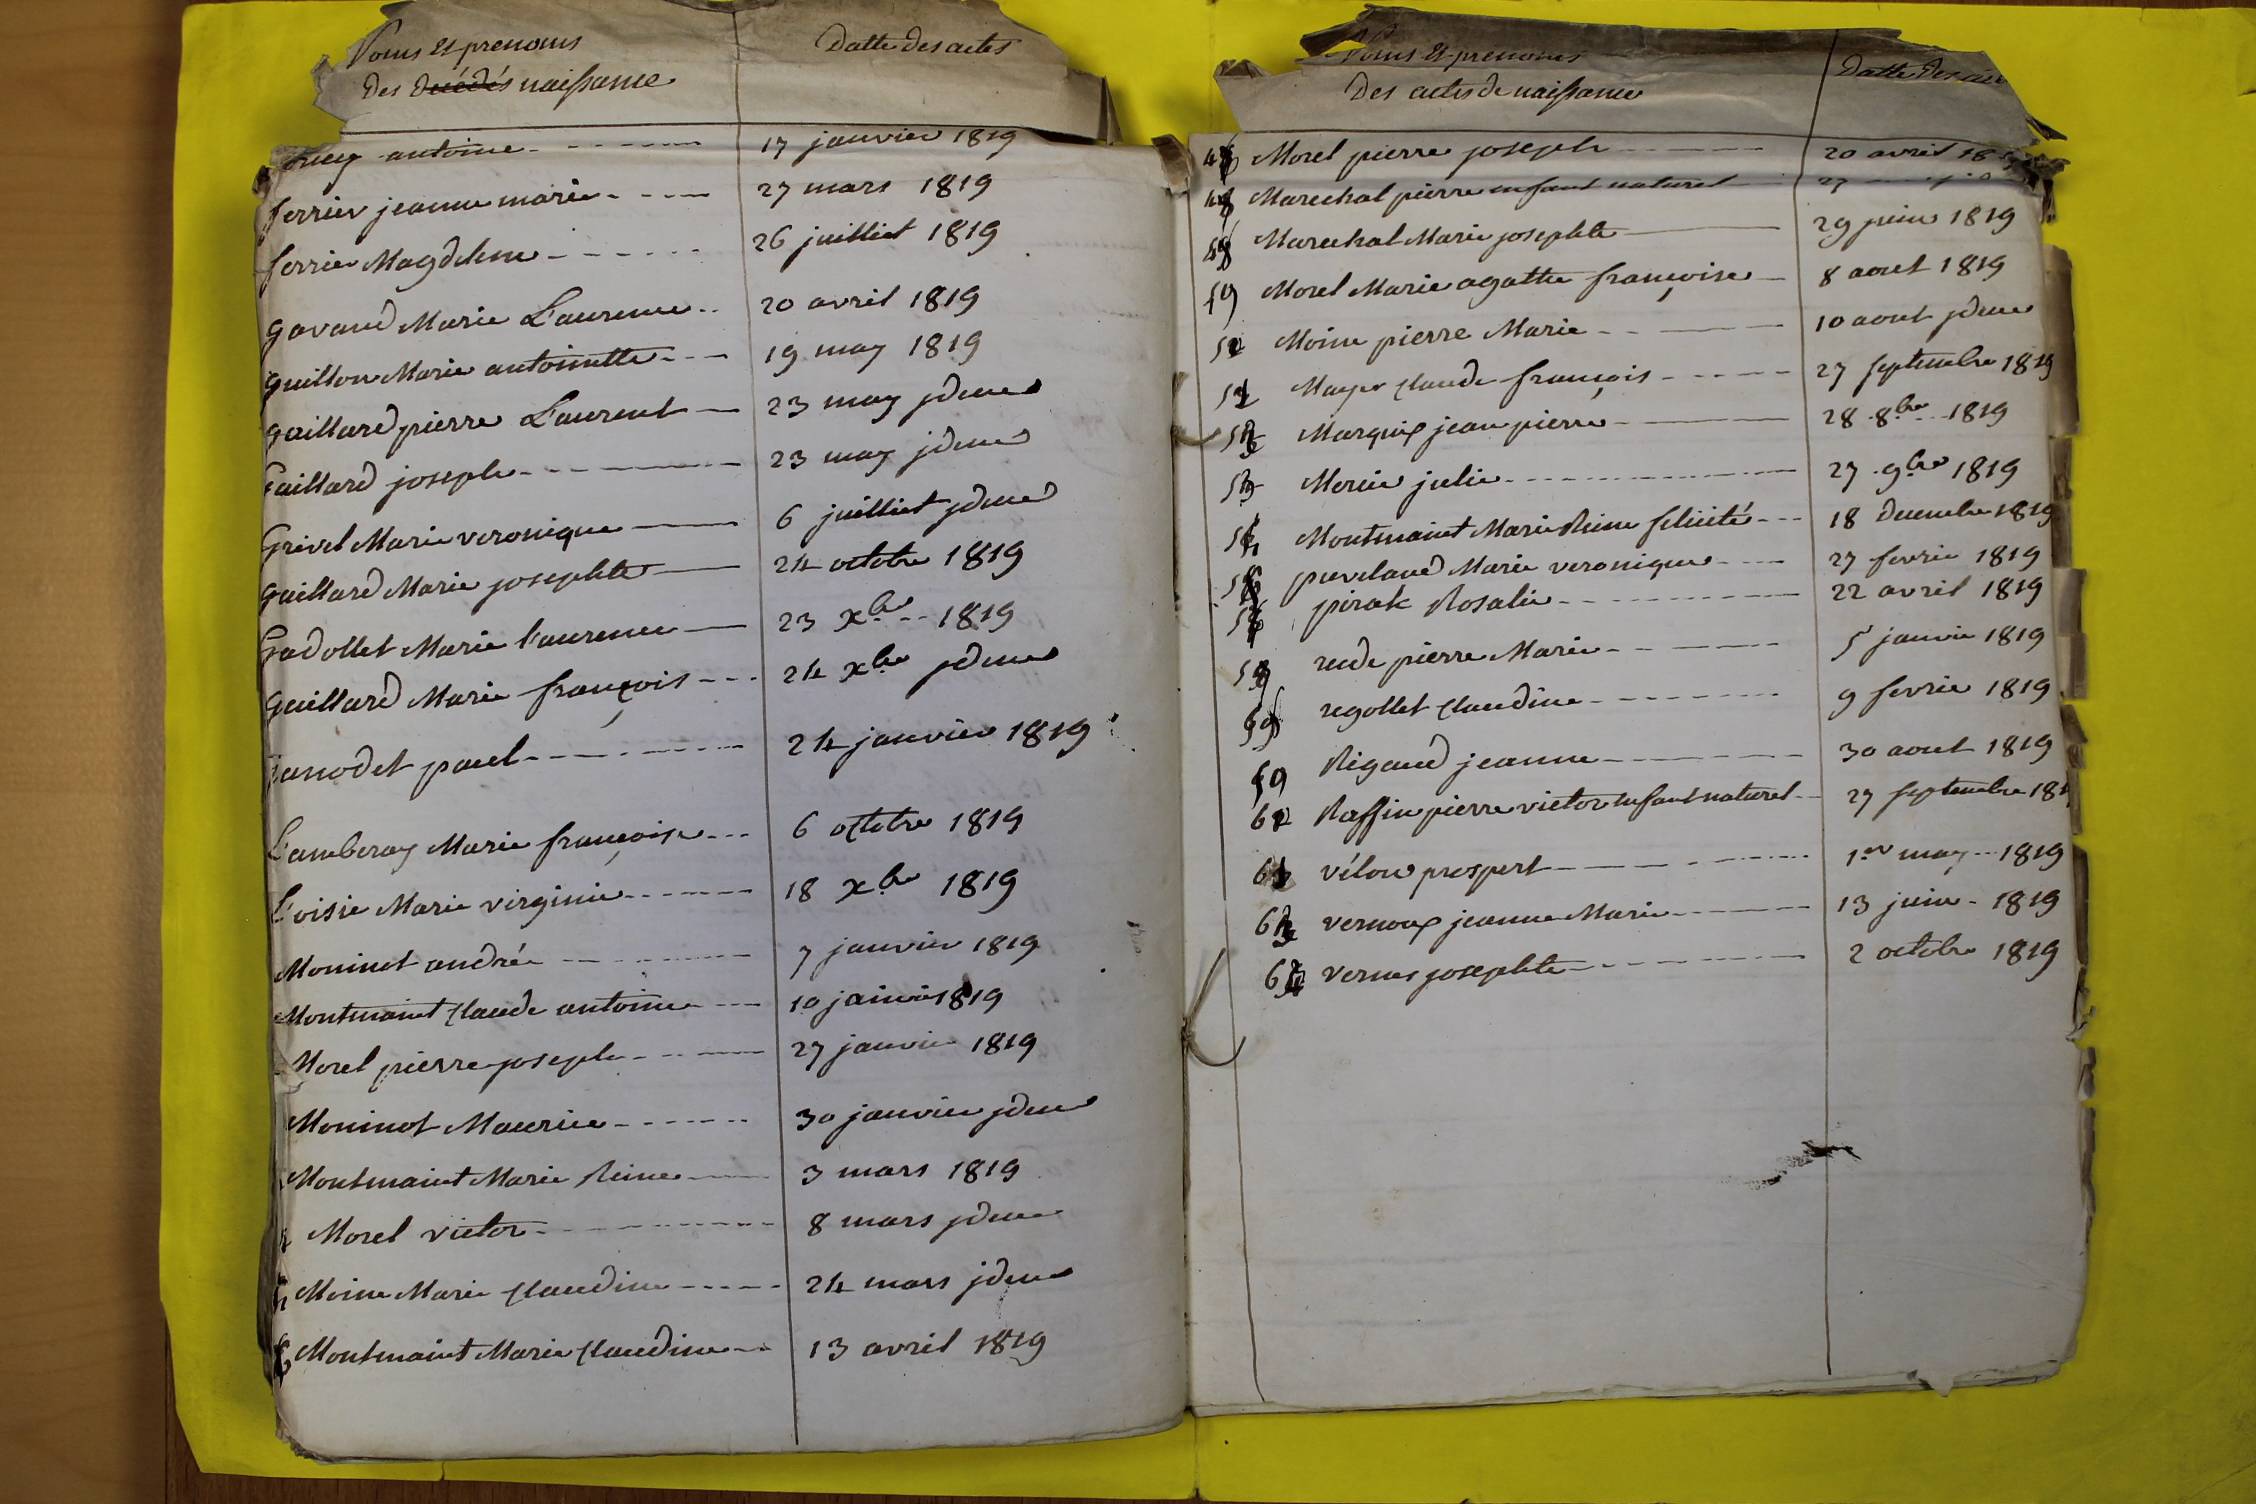 Noms Et prenoms
Des decédés naissance
Datte des actes
antoine 17 janvier 1819
ferrier jeanne marie 27 mars 1819
ferrier Magdelene 26 juilliet 1819
gavand Marie Laurence 20 avril 1819
guillon Marie antoinette 19 may 1819
gaillard pierre Laurent 23 may jdem
Gaillard joseph 23 may jdem
Grivel Marie veronique 6 juilliet jdem
gaillard Marie josephte 24 octobre 1819
Gadollet Marie laurence 23 Xbre 1819
gaillard Marie françois 24 Xbre jdem
paul 24 janvier 1819
Lamberay Marie françoise 6 octobre 1819
Loisie Marie virginie 18 Xbre 1819
Moninot andrée 7 janvier 1819
Montmaint Claude antoine 10 janvier 1819
Morel pierre joseph 27 janvier 1819
Moninot Maurice 30 janvier jdem
Montmaint Marie Reine 3 mars 1819
Morel victor 8 mars jdem
Moine Marie Claudine 24 mars jdem
Montmaint Marie Claudine 13 avril 1819
Noms Et prenoms
Des actes de naissance
Datte Des
Morel pierre joseph 20 avril
Marechal pierre enfant naturel 27
Marechal Marie josephte 29 juin 1819
Morel Marie agathe françoise 8 aout 1819
Moine pierre Marie 10 aout jdem
Mayer Claude françois 27 septembre 1819
Marquis jean pierre 28 8bre 1819
Mercie julie 27 9bre 1819
Montmaint Marie Reine felicité 18 decembre 1819
Marie veronique 27 fevrie 1819
Rosalie 22 avril 1819
pierre Marie 5 janvie 1819
regollet Claudine 9 fevrie 1819
Rigaud jeanne 30 aout 1819
Raffin pierre victor enfant naturel 27 septembre 181
vélon prospert 1er may 1819
vernoux jeanne Marie 13 juin 1819
vernes josephte 2 octobre 1819